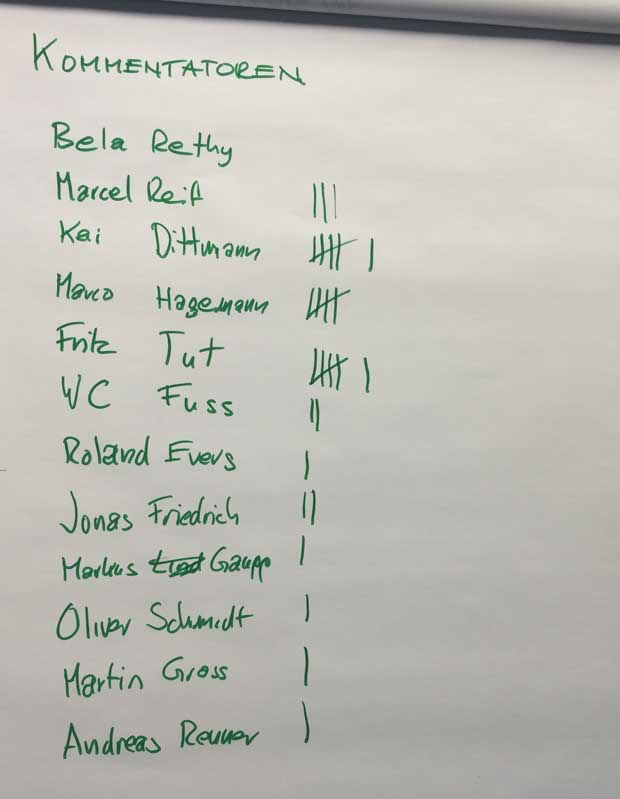 KOMMENTATOREN
Bela Rethy
Marcel Reif |||
Kai Dittmann |||| |
Marco Hagemann ||||
Fritz Tut |||| |
WC Fuss ||
Roland Evers |
Jonas Friedrich ||
Markus Gaupp |
Oliver Schmidt |
Martin Gross |
Andreas Renner |